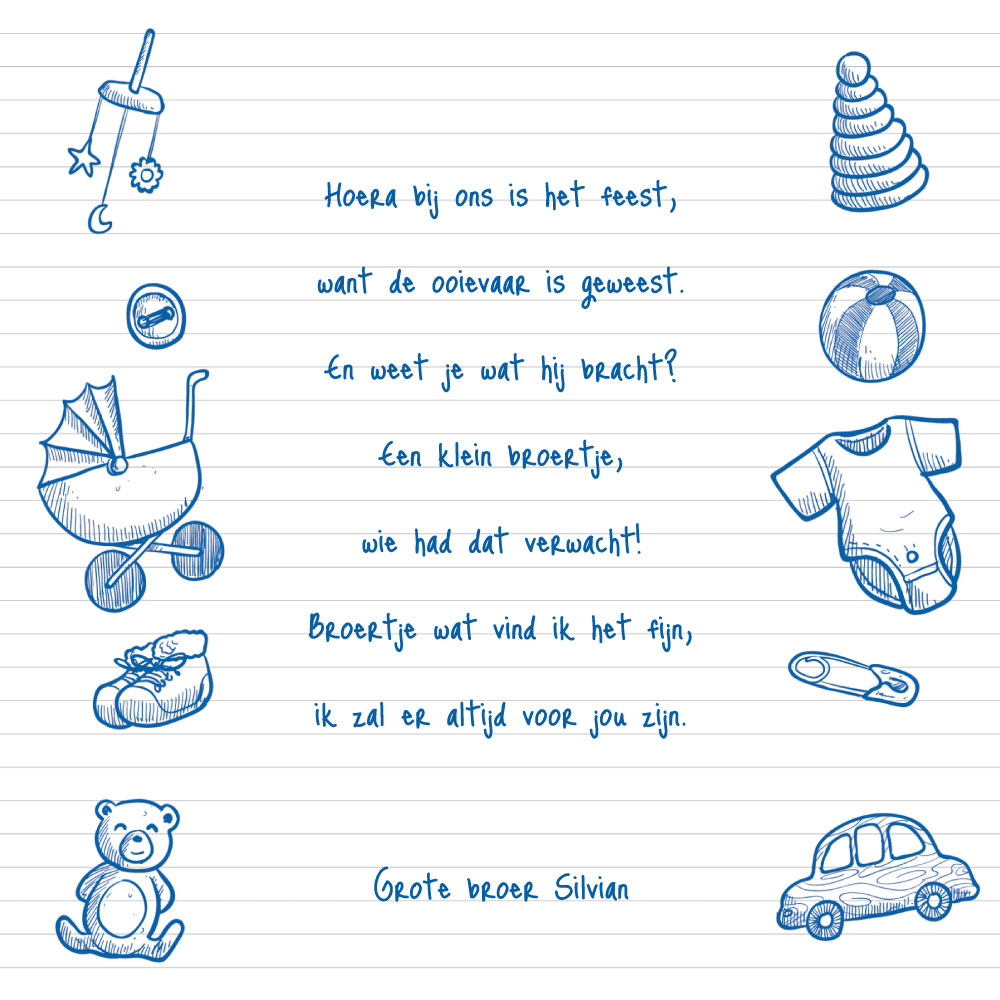 Hoera bij ons is het feest,
want de ooievaar is geweest.
En weet je wat hij bracht?
Een klein broertje,
wie had dat verwacht!
Broertje wat vind ik het fijn,
ik zal er altijd voor jou zijn.
Grote broer Silvian